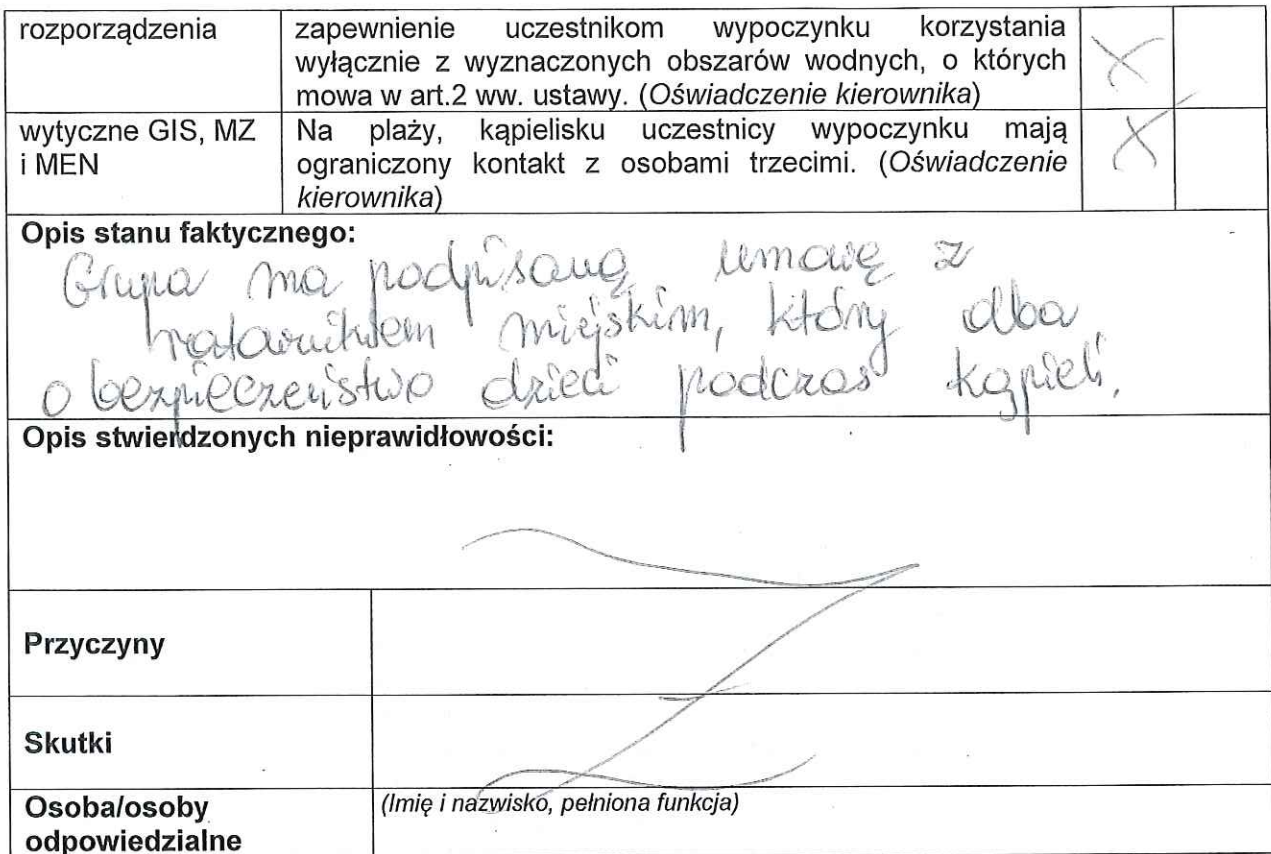 rozporządzenia
zapewnienie uczestnikom wypoczynku korzystania
wyłącznie z wyznaczonych obszarów wodnych, o których
mowa w art.2 ww. ustawy. (Oświadczenie kierownika)
X
wytyczne GIS, MZ
i MEN
Na plaży, kąpielisku uczestnicy wypoczynku mają
ograniczony kontakt z osobami trzecimi. (Oświadczenie
kierownika)
X
Opis stanu faktycznego:
Grupa ma podpisaną umowę z
ratownikiem miejskim, który dba
o bezpieczeństwo dzieci podczas kąpieli.
Opis stwierdzonych nieprawidłowości:
Przyczyny
Skutki
Osoba/osoby
odpowiedzialne
(Imię i nazwisko, pełniona funkcja)